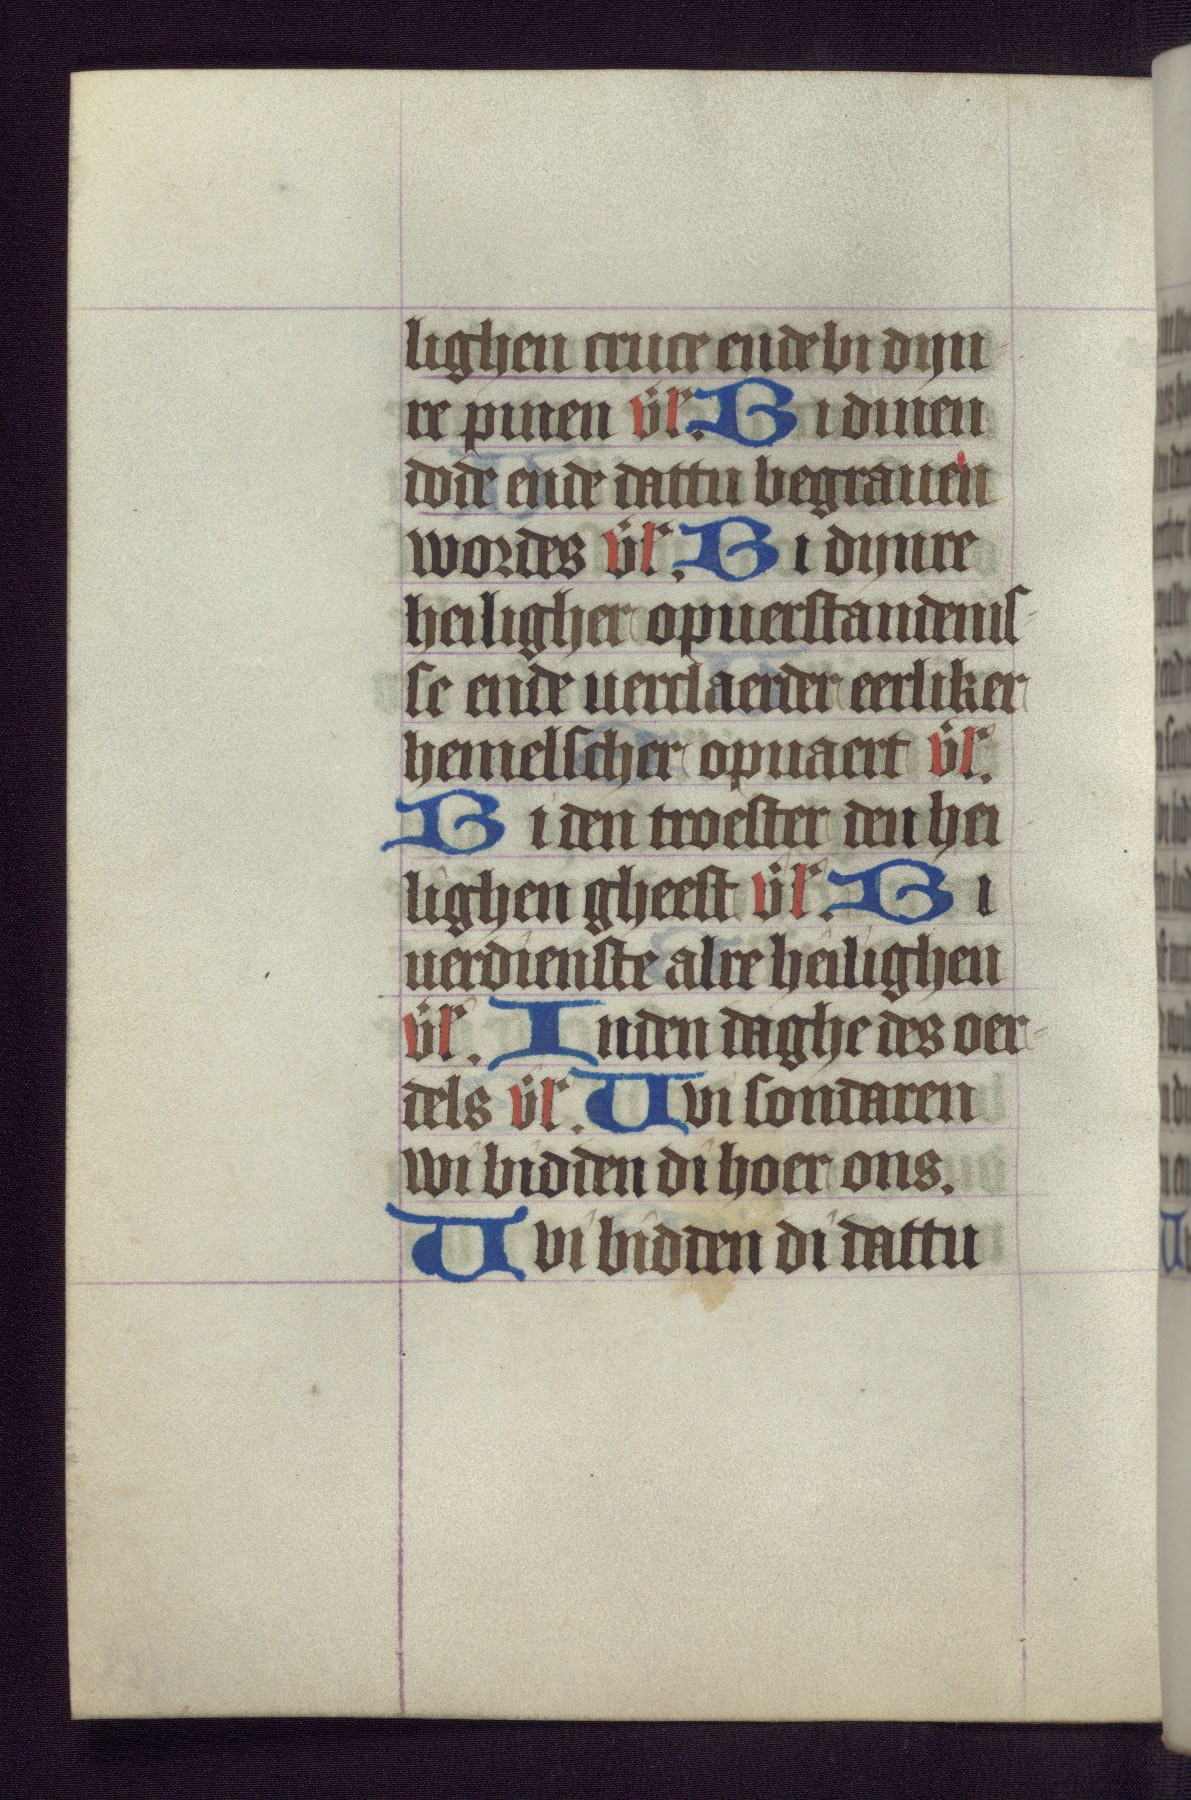 lighen cruce ende bi dijn
re pinen v̈l᷒. Bi dinen
dode ende dattu begrauen
wordes v̈l᷒. Bi dijnre
heiligher opuerstandenis-
se ende uerclaerder eerliker
hemelscher opuaert v̈l᷒.
Bi den troester den hei
lighen gheest v̈l᷒. Bi
uerdienste alre heilighen
v̈l᷒. Inden daghe des oer-
dels v̈l᷒. Wi sondaren
wi bidden di hoer ons.
Wi bidden di dattu